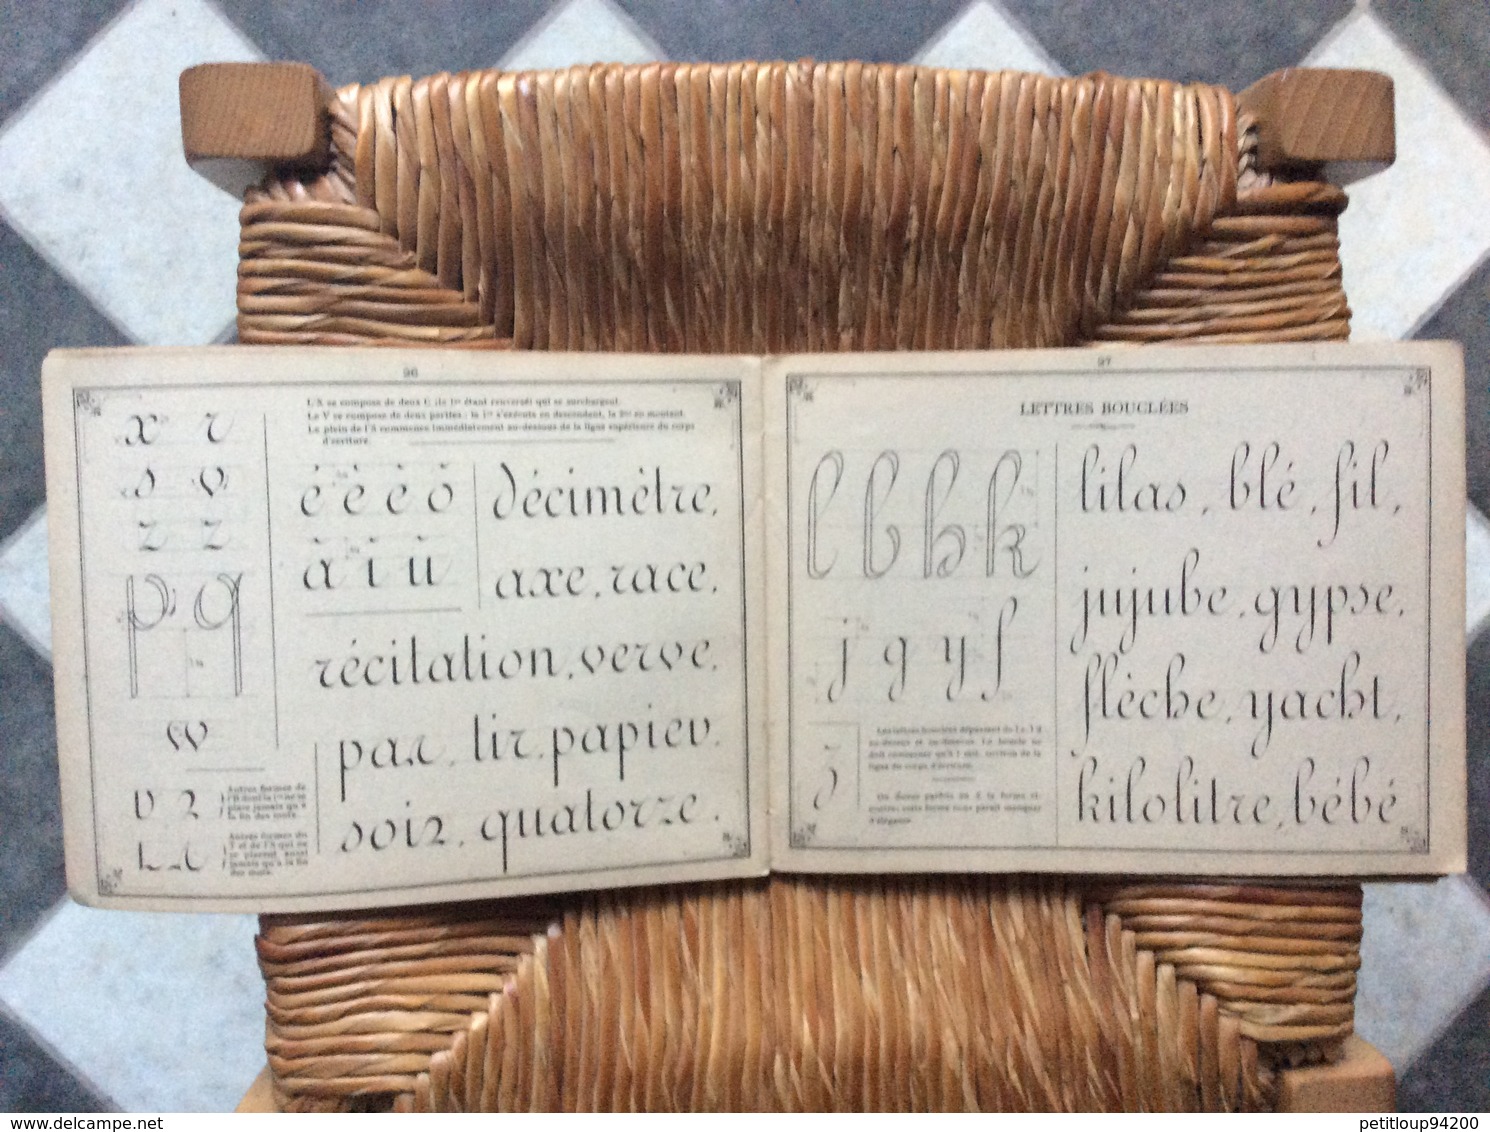 26
L'X se compose de deux C (le 1er étant renversé) qui se surchargent.
Le V se compose de deux parties : la 1re s'exécute en descendant, la 2me en montant.
Le plein de l'S commence immédiatement au-dessous de la ligne supérieure du corps
d'écriture.
x r
s v
z z
p q
w
é è ê ô
à i û
décimètre,
axe, race,
récitation, verve,
par, tir, papier,
soir, quatorze,
Autres formes de
l'R dont la 1re ne se
place jamais qu'à
la fin des mots.
27
LETTRES BOUCLÉES
l b h k
j g y f
z
Les lettres bouclées dépassent de
au-dessus et au-dessous. La boucle ne
doit commencer qu'à 1 mill. environ de la
ligne du corps d'écriture.
On donne parfois au Z la forme ci-
contre; cette forme nous paraît manquer
d'élégance.
lilas, blé, fil,
jujube, gypse,
flèche, yacht,
kilolitre, bébé
www.delcampe.net
petitloup94200